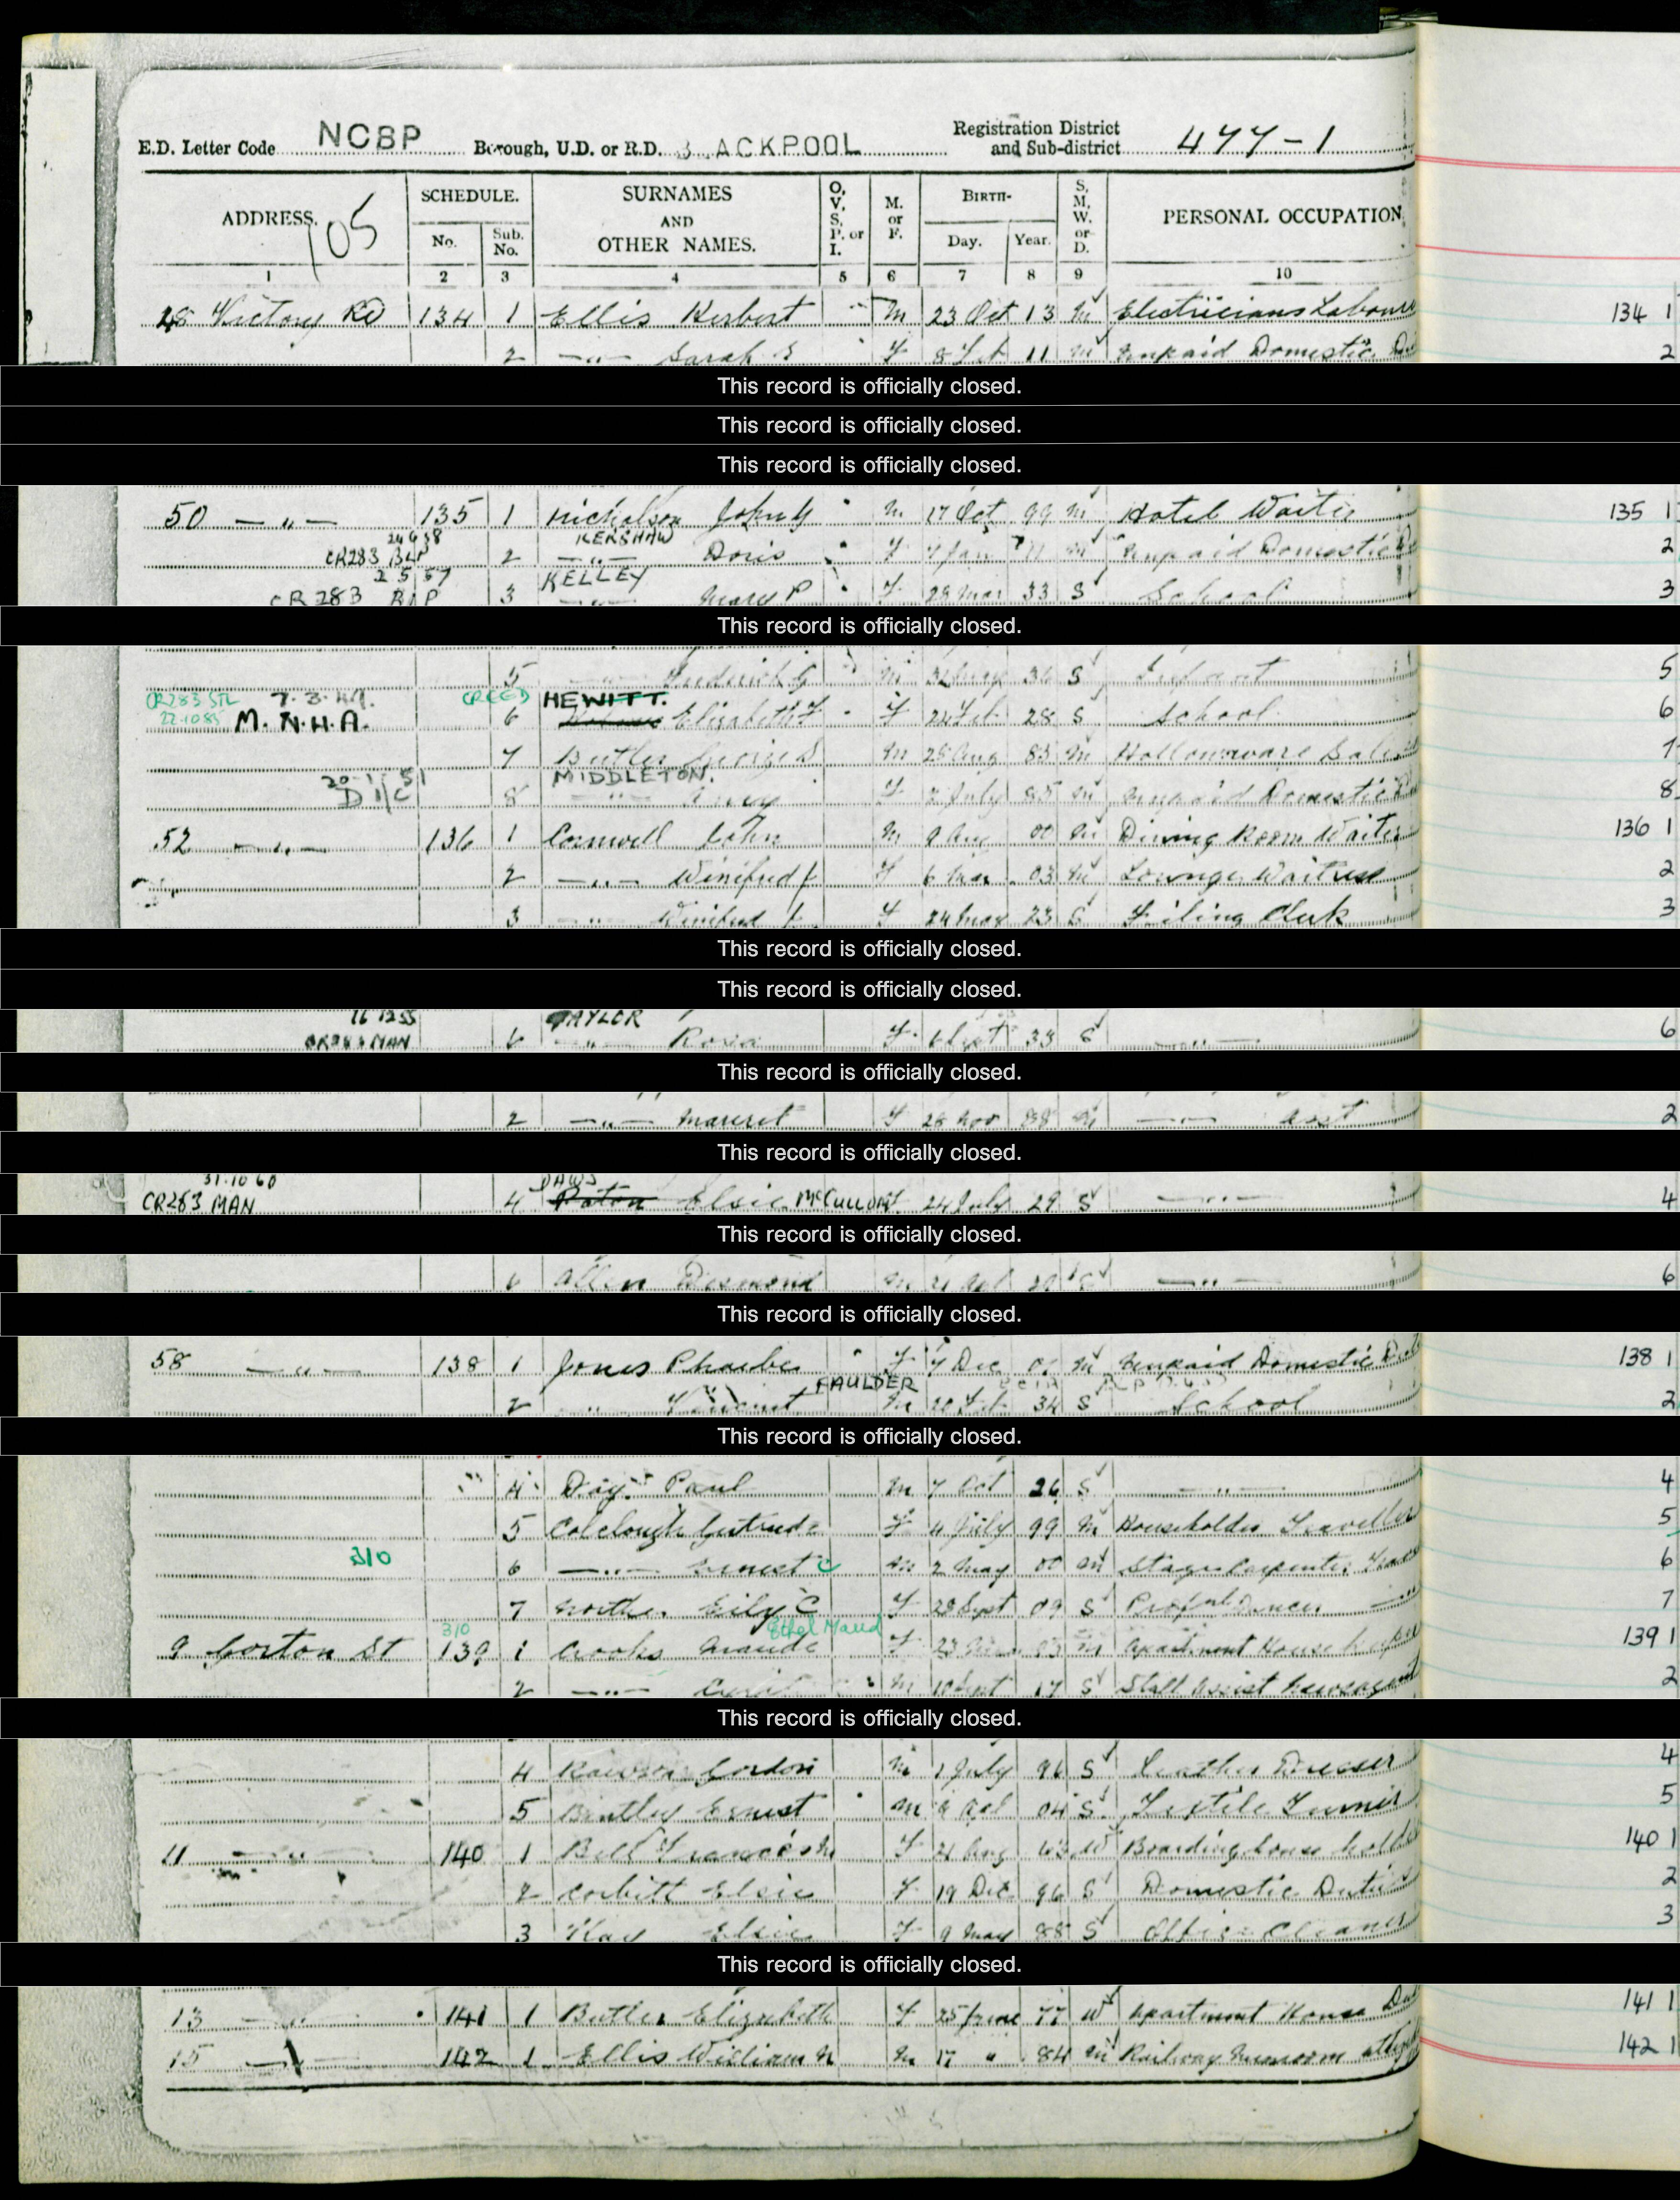 E.D. Letter Code NCBP Borough, U.D. or R.D. B ACKPOOL Registration District and Sub-district 477-1
ADDRESS. 105 SCHEDULE. No. Sub. No. SURNAMES AND OTHER NAMES. O, V, S, P, or I. M. or F. BIRTH- Day. Year. S, M, W. or D. PERSONAL OCCUPATION
1 2 3 4 5 6 7 8 9 10
48 Victory Rd 134 1 Ellis Herbert M 23 Oct 13 M Electricians Labour 134 1
2 —„— Sarah F 8 Feb 11 M Unpaid Domestic 2
This record is officially closed.
This record is officially closed.
This record is officially closed.
50 —„— 135 1 Nicholson John M 17 Oct 99 M Hotel Waiter 135 1
KERSHAW
CR283 BLP 2 —„— Doris F 7 Jan 11 M Unpaid Domestic 2
2 5 57 KELLEY
CR 283 3 —„— Mary P F 28 Mar 33 S School 3
This record is officially closed.
5 Frederick G M 36 S Infant 5
CR283 STL 7.3.49. CREED HEWITT.
22.10.85 M.N.H.A. 6 Elizabeth F 24 Feb 28 S School 6
7 Butler George S M 28 Aug 83 M Hollowware 7
20 1 51 MIDDLETON.
8 —„— F 2 July 85 M Unpaid Domestic 8
52 —„— 136 1 John M 9 Aug 00 M Dining Room Waiter 136 1
2 —„— Winifred F 6 Mar 03 M Lounge Waitress 2
3 —„— Winifred F 24 May 23 S Filing Clerk 3
This record is officially closed.
This record is officially closed.
16 12 55 TAYLOR
MAN 6 —„— F 33 S —„— 6
This record is officially closed.
2 —„— F 28 Nov 88 M —„— 2
This record is officially closed.
31.10 60 DAWS
CR283 MAN 4 Paton Elsie McCULLOM F 24 July 29 S —„— 4
This record is officially closed.
6 Allen Desmond M 21 29 S —„— 6
This record is officially closed.
58 —„— 138 1 Jones Phoebe F 7 Dec M Unpaid Domestic 138 1
FAULDER
2 „ M 34 S School 2
This record is officially closed.
4 Day Paul M 7 Oct 26 S —„— 4
5 Colclough Gertrude F 4 July 99 M Householder Traveller 5
310 6 —„— Ernest C M 2 May 00 M Stage Carpenter 6
7 F 28 Sept 09 S Dancer 7
310 Ethel Maud
9 Gorton St 139 1 Crooks Maude F 23 M Apartment House keeper 139 1
2 —„— Cyril M 10 Sept 17 S Stall Assist 2
This record is officially closed.
4 Rawson Gordon M 1 July 96 S Leather Dresser 4
5 Bentley Ernest M 04 S Textile 5
11 —„— 140 1 Bell Frances F 21 Aug W Boarding house 140 1
2 Corbitt Elsie F 19 Dec 96 S Domestic Duties 2
3 Kay Elsie F 9 May 88 S Office Cleaner 3
This record is officially closed.
13 —„— 141 1 Butler Elizabeth F 25 June 77 W Apartment House 141 1
15 —„— 142 1 Ellis William M 17 „ 84 M Railway 142 1